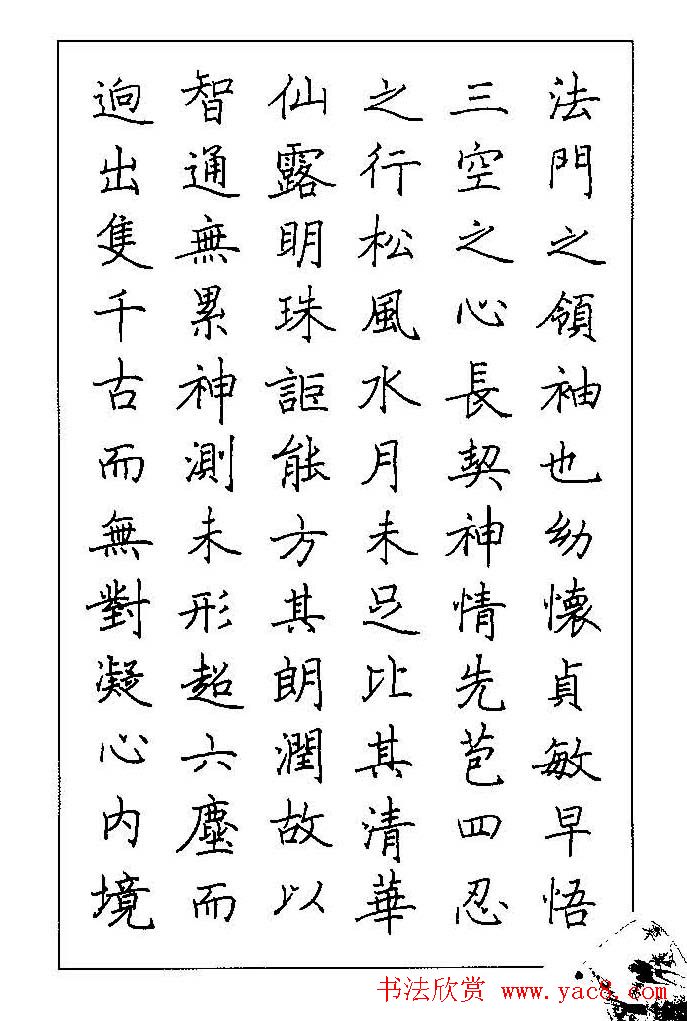 法門之領袖也幼懷貞敏早悟
三空之心長契神情先苞四忍
之行松風水月未足比其清華
仙露明珠詎能方其朗潤故以
智通無累神測未形超六塵而
逈出隻千古而無對凝心內境
书法欣赏 www.yac8.com